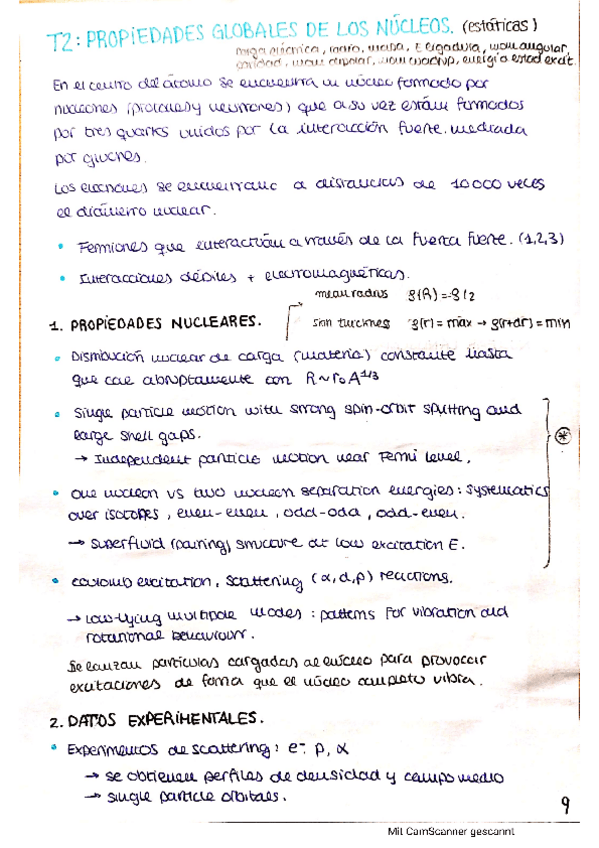 T2: PROPIEDADES GLOBALES DE LOS NÚCLEOS. (estáticas)
masa atómica, radio, masa, E ligadura, mom angular,
paridad, mom dipolar, mom cuadrup, energía estad excit.
En el centro del átomo se encuentra un núcleo formado por
nucleones (protones y neutrones) que a su vez están formados
por tres quarks unidos por la interacción fuerte mediada
por gluones.
Los electrones se encuentran a distancias de 10000 veces
el diámetro nuclear.
• Fermiones que interactúan a través de la fuerza fuerte. (1,2,3)
• Interacciones débiles + electromagnéticas.
mean radius ρ(R) = ρ/2
1. PROPIEDADES NUCLEARES.
skin thickness ρ(r) = max → ρ(r+dr) = min
• Distribución nuclear de carga (materia) constante hasta
que cae abruptamente con R~r₀A^1/3
• Single particle motion with strong spin-orbit splitting and
large shell gaps.
→ Independent particle motion near Fermi level.
*
• One nucleon vs two nucleon separation energies: systematics
over isotopes, even-even, odd-odd, odd-even.
→ Superfluid (pairing) structure at low excitation E.
• Coulomb excitation, scattering (α,d,p) reactions.
→ Low-lying multipole modes: patterns for vibration and
rotational behaviour.
Se lanzan partículas cargadas al núcleo para provocar
excitaciones de forma que el núcleo completo vibra.
2. DATOS EXPERIMENTALES.
• Experimentos de scattering: e⁻, p, α
→ se obtienen perfiles de densidad y campo medio
→ single particle orbitals.
9
Mit CamScanner gescannt